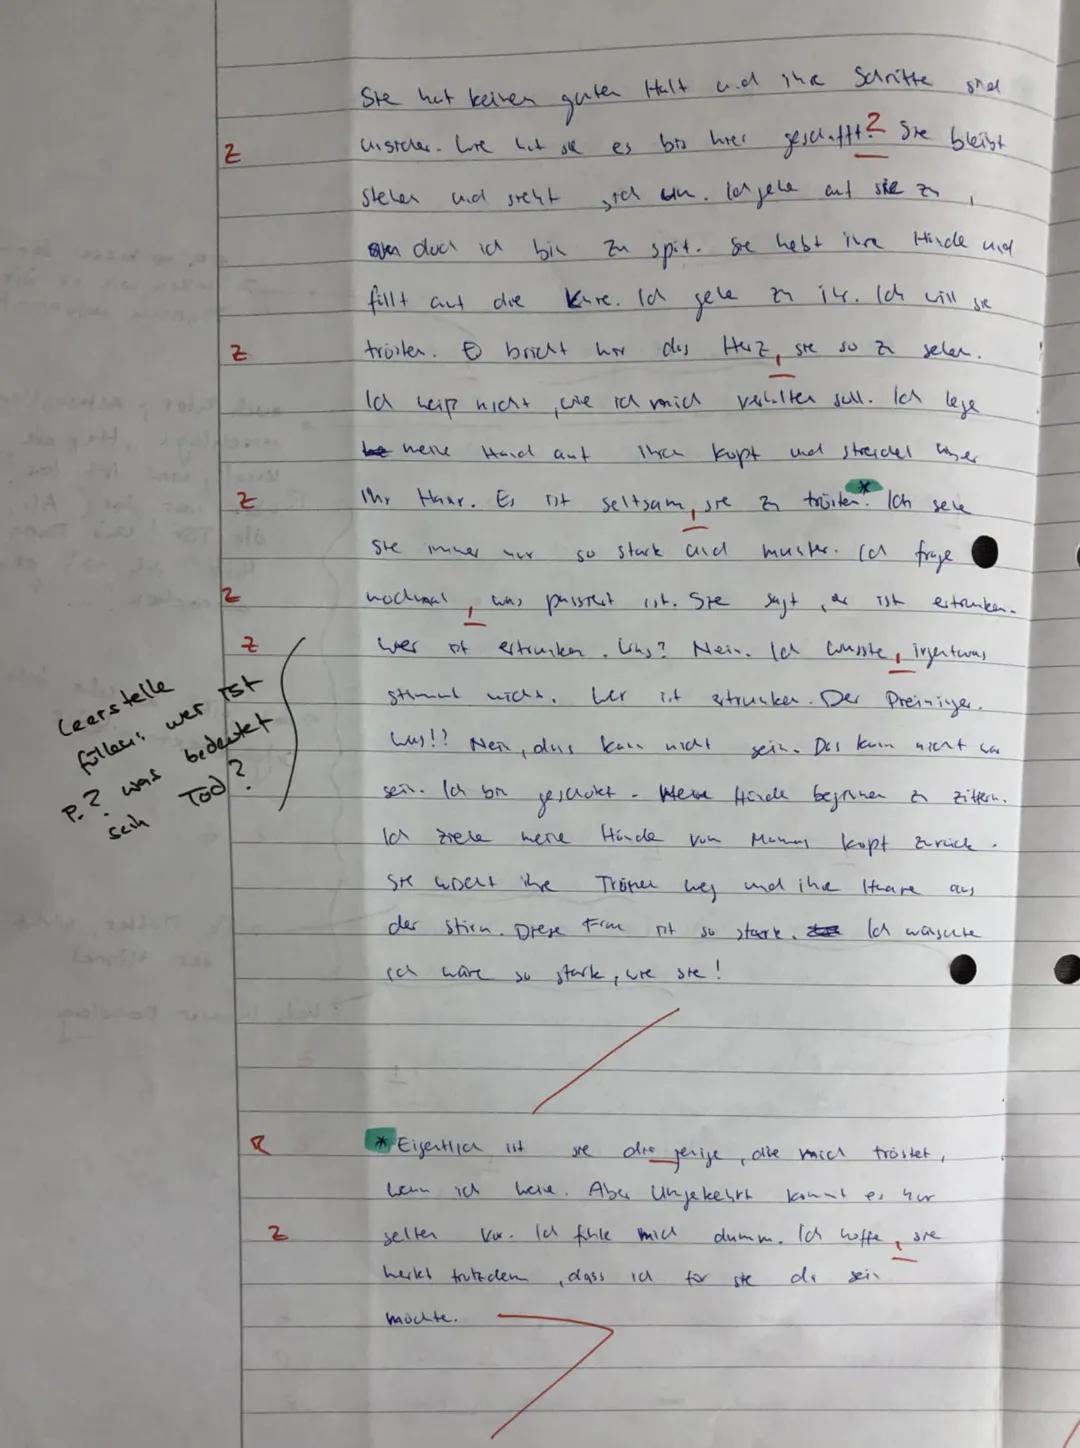 Sie hat keinen guten Halt und ihre Schritte sind
Z unsicher. Wie hat sie es bis hier geschafft? Sie bleibt
stehen und sieht sich um. Ich gehe auf sie zu,
doch ich bin zu spät. Sie hebt ihre Hände und
fällt auf die Knie. Ich gehe zu ihr. Ich will sie
Z trösten. Es bricht mir das Herz, sie so zu sehen.
Ich weiß nicht, wie ich mich verhalten soll. Ich lege
meine Hand auf ihren Kopf und streichel über
Z ihr Haar. Es ist seltsam, sie zu trösten.* Ich sehe
sie immer nur so stark und munter. Ich frage
Z nochmal, was passiert ist. Sie sagt, er ist ertrunken.
Z Wer ist ertrunken. Was? Nein. Ich wusste, irgentwas
stimmt nicht. Wer ist ertrunken. Der Preininger.
Was!? Nein, das kann nicht sein. Das kann nicht wa
sein. Ich bin geschockt. Meine Hände beginnen zu zittern.
Ich ziehe meine Hände von Mamas Kopf zurück.
Sie wischt ihre Tränen weg und ihre Haare aus
der Stirn. Diese Frau ist so stark. Ich wünschte
ich wäre so stark, wie sie!
Leerstelle
füllen: wer ist
P.? was bedeutet
sein Tod?
R * Eigentlich ist sie die jenige, die mich tröstet,
wenn ich weine. Aber Umgekehrt kommt es nur
Z selten vor. Ich fühle mich dumm. Ich hoffe, sie
merkt trotzdem, dass ich für sie da sein
möchte.